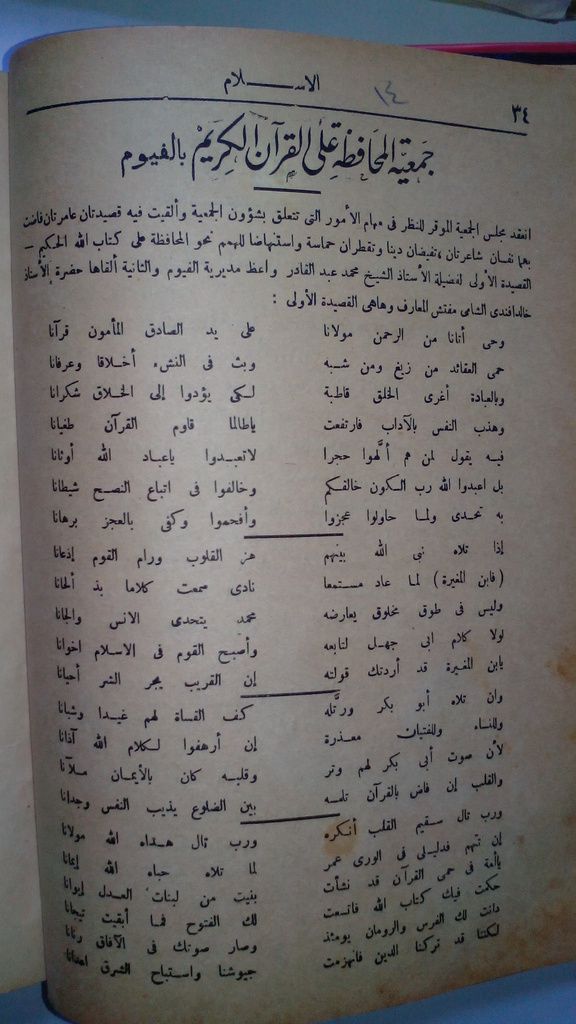 الاســـلام
١٤
٣٤
جمعية المحافظة على القرآن الكريم بالفيوم
انعقد مجلس الجمعية الموقر للنظر فى مهام الأمور التى تتعلق بشؤون الجمعية وألقيت فيه قصيدتان عامرتان فاضت
بهما نفسان شاعرتان ، تفيضان دينا وتقطران حماسة واستنهاضا للهمم نحو المحافظة على كتاب الله الحكيم —
القصيدة الأولى لفضيلة الأستاذ الشيخ محمد عبد القادر واعظ مديرية الفيوم والثانية ألقاها حضرة الأستاذ
خالد افندى الشامى مفتش المعارف وهاهى القصيدة الأولى :
وحى أتانا من الرحمن مولانا على يد الصادق المأمون قرآنا
حمى العقائد من زيغ ومن شبه وبث فى النشء أخلاقا وعرفانا
وبالعبادة أغرى الخلق قاطبة لكى يؤدوا إلى الخلاق شكرانا
وهذب النفس بالآداب فارتفعت ياطالما قاوم القرآن طغيانا
فيه يقول لمن هم ألَّهوا حجرا لاتعبدوا ياعباد الله أوثانا
بل اعبدوا الله رب الكون خالقكم وخالفوا فى اتباع النصح شيطانا
به تحدى ولما حاولوا عجزوا وأفحموا وكفى بالعجز برهانا
إذا تلاه نبى الله بينهم هز القلوب ورام القوم إذعانا
( فابن المغيرة ) لما عاد مستمعا نادى سمعت كلاما بذ ألحانا
وليس فى طوق مخلوق يعارضه محمد يتحدى الانس والجانا
لولا كلام ابى جهل لتابعه وأصبح القوم فى الاسلام اخوانا
يابن المغيرة قد أردتك قولته إن القريب يجر الشر أحيانا
وان تلاه أبو بكر ورتَّله كف القساة لهم غيدا وشبانا
وللنساء وللفتيان معذرة إن أرهفوا لكلام الله آذانا
لأن صوت أبى بكر لهم وتر وقلبه كان بالأيمان ملآنا
والقلب إن فاض بالقرآن تلمسه بين الضلوع يذيب النفس وجدانا
ورب تال سقيم القلب أنكره ورب تال هداه الله مولانا
إن تتهم فدليلى فى الورى عمر لما تلاه حباه الله إيمانا
ياأمة فى حمى القرآن قد نشأت بنيت من لبنات العدل إيوانا
حكمت فيك كتاب الله فاتسعت لك الفتوح فما أبقيت تيجانا
دانت لك الفرس والرومان يومئذ وصار صوتك فى الآفاق رنانا
لكننا قد تركنا الدين فانهزمت جيوشنا واستباح الشرق اعدانا